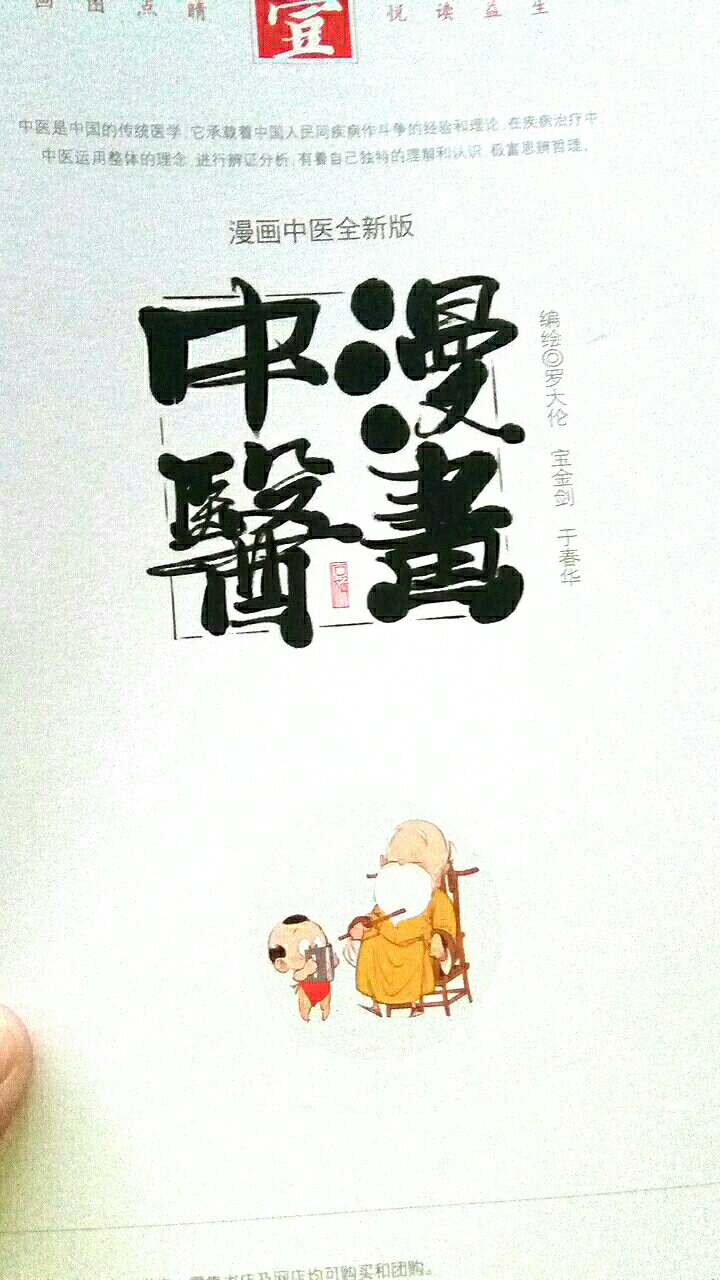 画图点睛
壹
悦读益生
中医是中国的传统医学,它承载着中国人民同疾病作斗争的经验和理论,在疾病治疗中,
中医运用整体的理念,进行辨证分析,有着自己独特的理解和认识,极富思辨哲理。
漫画中医全新版
漫畫
中醫
编绘◎罗大伦 宝金剑 于春华
书店及网店均可购买和团购。